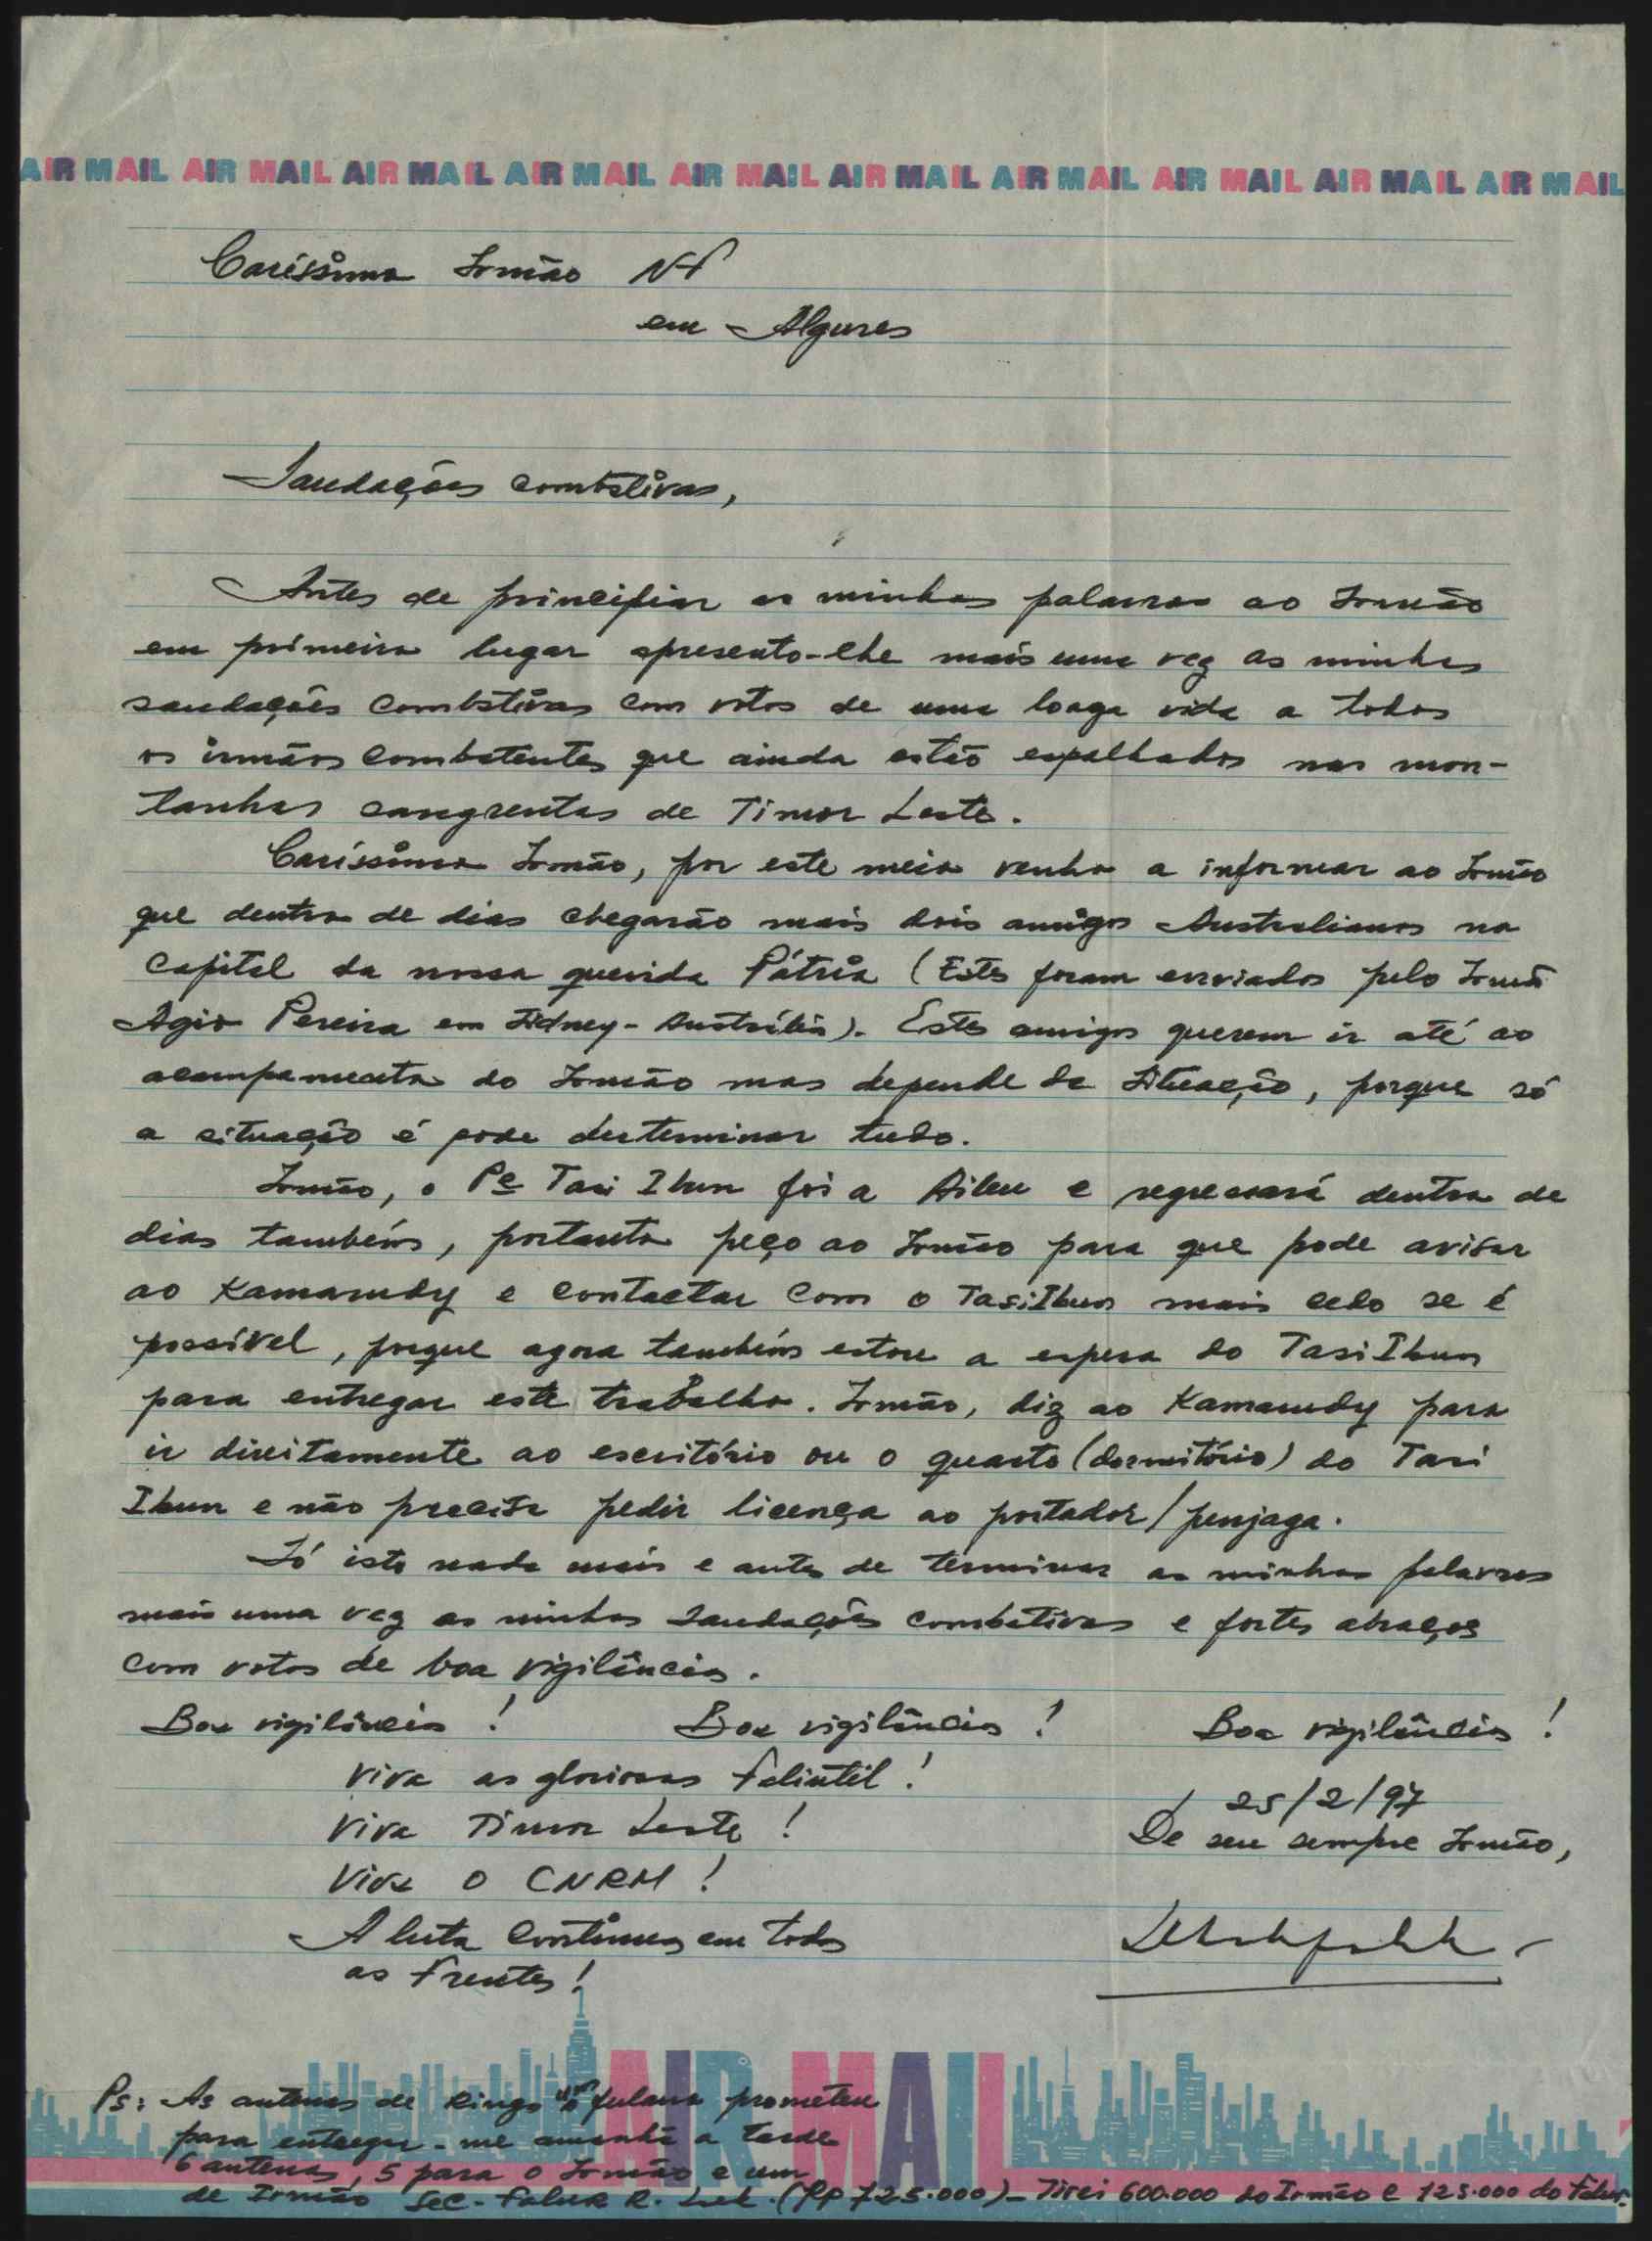 AIR MAIL AIR MAIL AIR MAIL AIR MAIL AIR MAIL AIR MAIL AIR MAIL AIR MAIL AIR MAIL AIR MAIL
Caríssimo Irmão
em Algures
Saudações combativas,
Antes de principiar as minhas palavras ao Irmão
em primeiro lugar apresento-lhe mais uma vez as minhas
saudações combativas com votos de uma longa vida a todos
os irmãos combatentes que ainda estão espalhados nas mon-
tanhas sangrentas de Timor Leste.
Caríssimo Irmão, por este meio venho a informar ao Irmão
que dentro de dias chegarão mais dois amigos Australianos na
capital da nossa querida Pátria (Estes foram enviados pelo Irmão
Agio Pereira em Sidney - Austrália). Estes amigos querem ir até ao
acampamento do Irmão mas depende da situação, porque só
a situação é pode desterminar tudo.
Irmão, o Pe Tasi Ibun foi a Aileu e regressará dentro de
dias também, portanto peço ao Irmão para que pode avisar
ao Kamarudy e contactar com o TasiIbun mais cedo se é
possível, porque agora também estou a espera do TasiIbun
para entregar este trabalho. Irmão, diz ao Kamarudy para
ir direitamente ao escritório ou o quarto (dormitório) do Tasi
Ibun e não precisa pedir licença ao portador/penjaga.
Só isto nada mais e antes de terminar as minhas palavras
mais uma vez as minhas saudações combativas e fortes abraços
com votos de boa vigilância.
Boa vigilância ! Boa vigilância ! Boa vigilância !
Viva as gloriosas Falintil !
25/2/97
Viva Timor Leste !
De seu sempre Irmão,
Viva o CNRM !
A luta continua em todas
as frentes !
AIR MAIL
Ps: As antenas de Ringo fulano prometeu
para entregar-me amanhã a tarde
6 antenas, 5 para o Irmão e um
de Irmão Sec. Falur R. Lek. (Rp 725.000) - Tirei 600.000 do Irmão e 125.000 do Falur.